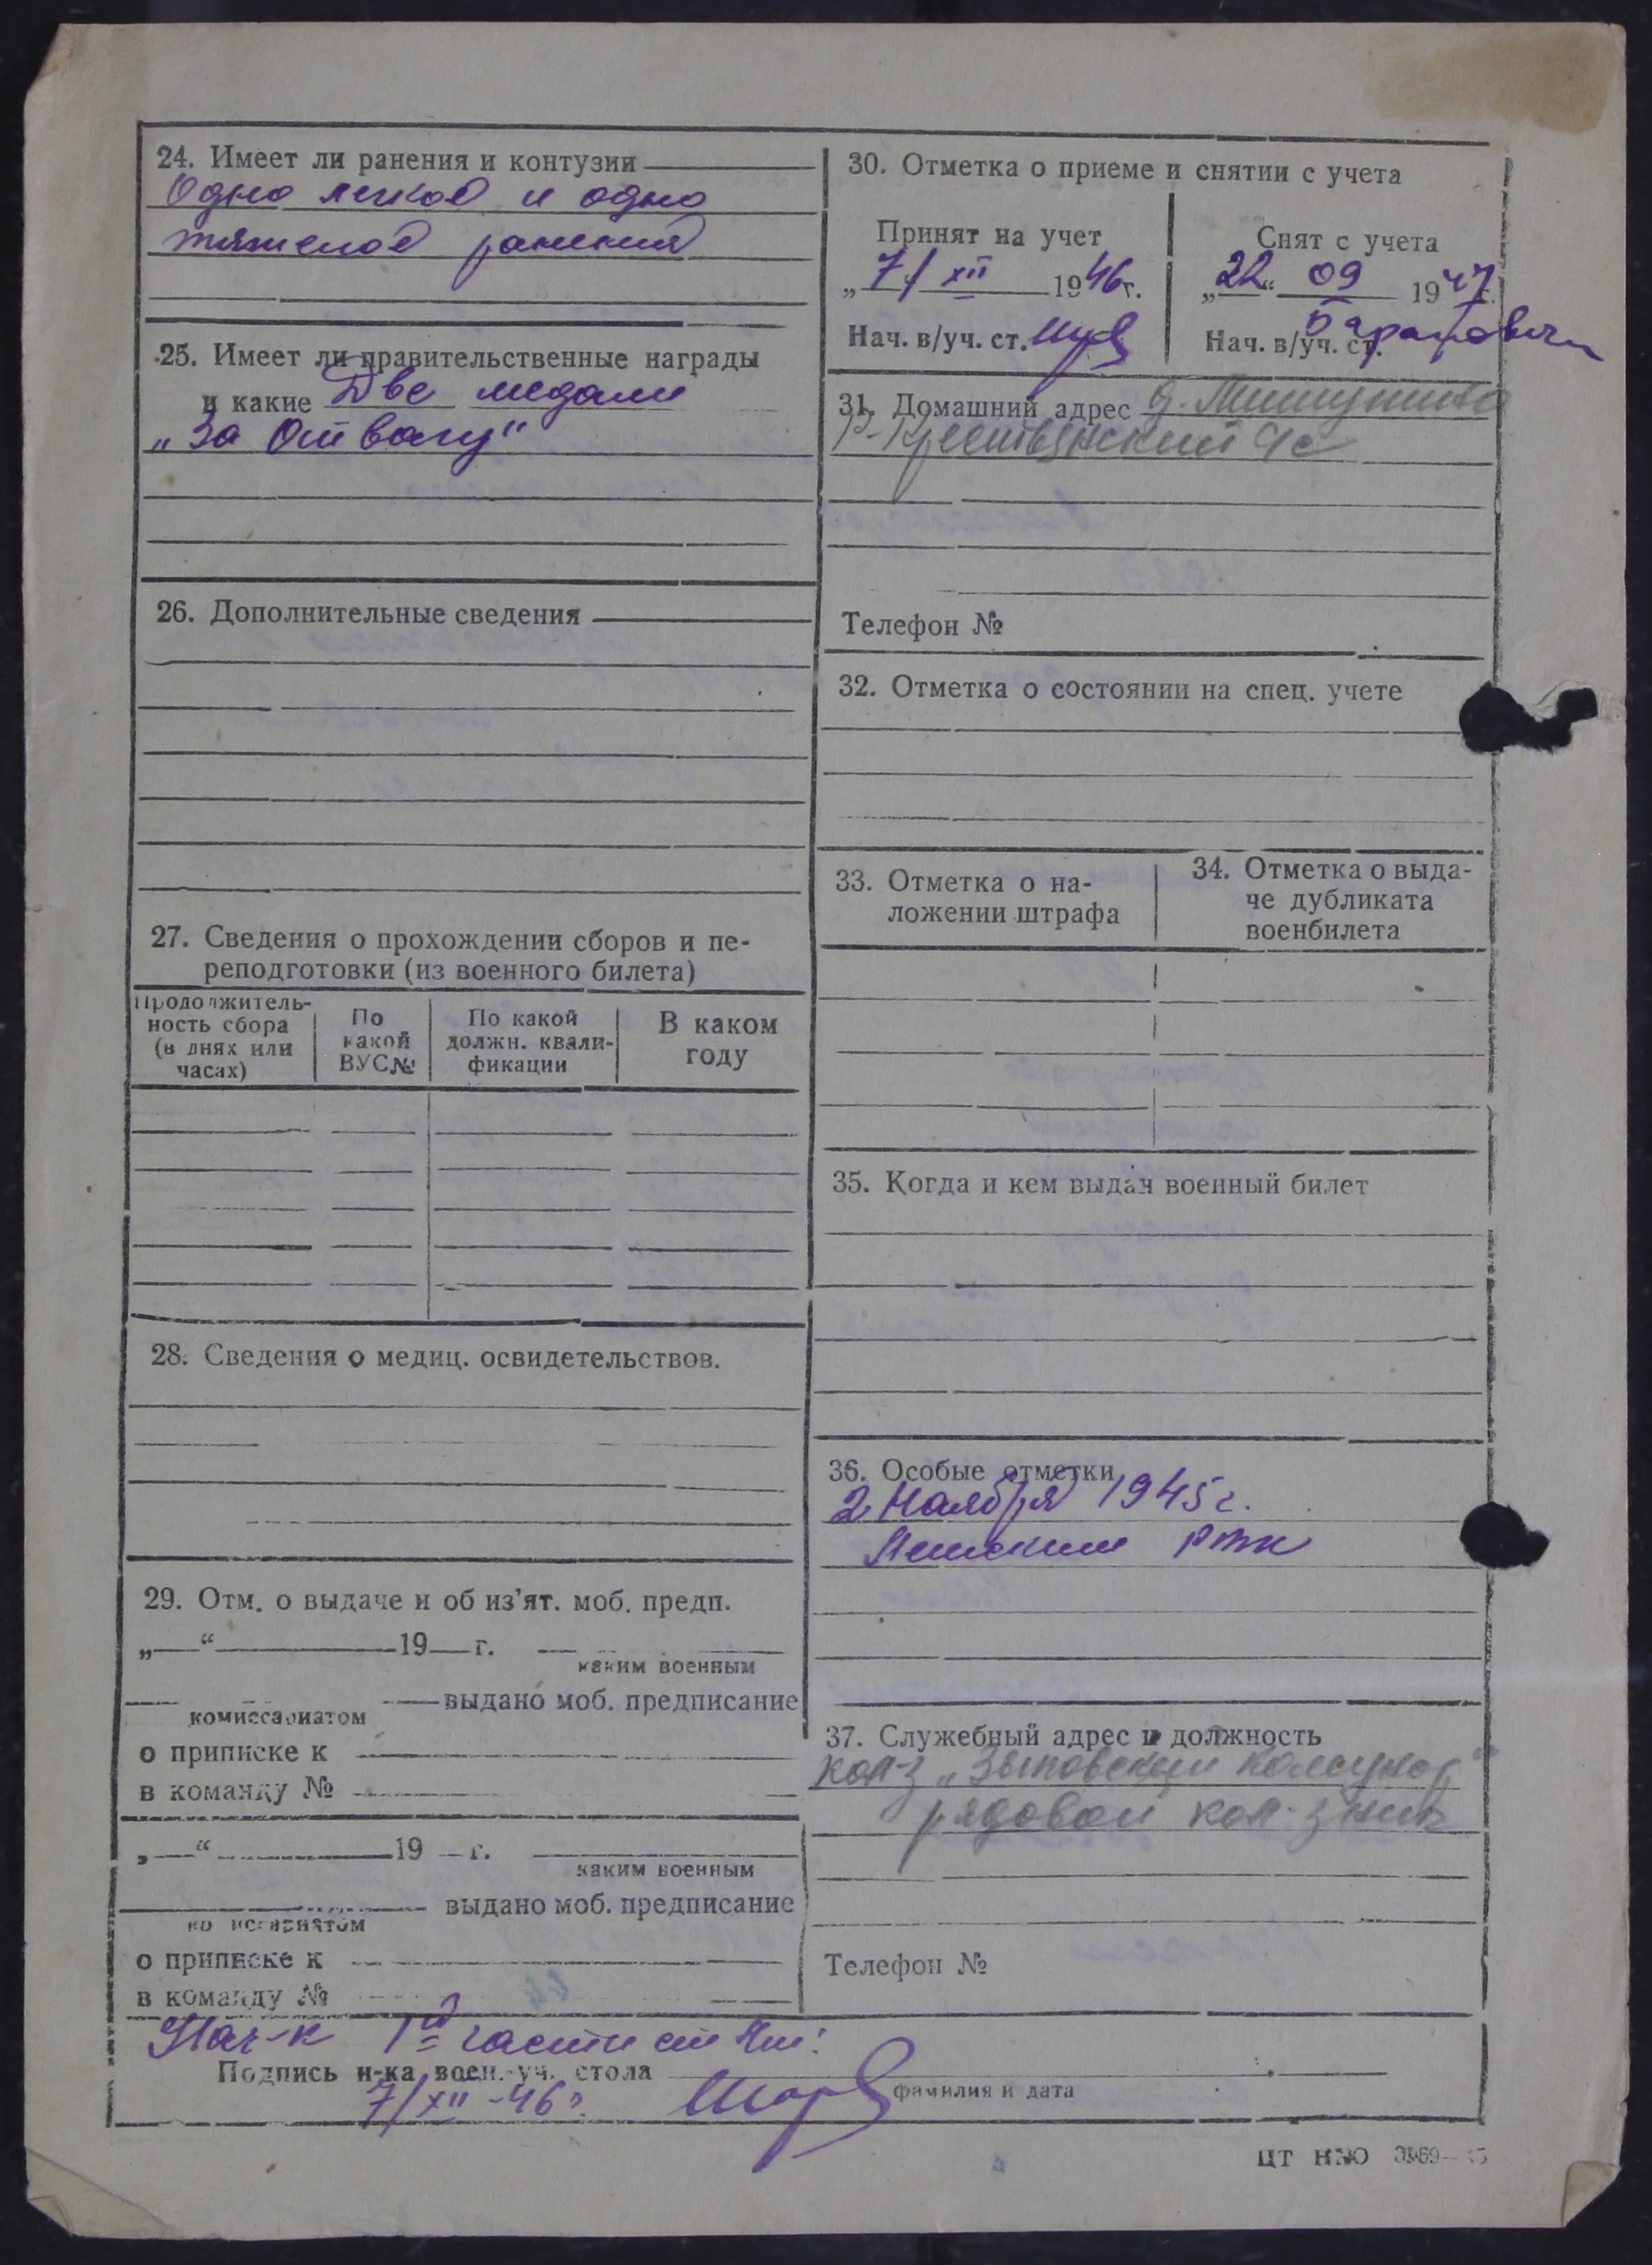 24. Имеет ли ранения и контузии
Одно легкое и одно
тяжелое ранения
25. Имеет ли правительственные награды
и какие Две медали
„За Отвагу"
26. Дополнительные сведения
27. Сведения о прохождении сборов и пе-
реподготовки (из военного билета)
Продолжитель-
ность сбора
(в днях или
часах)
По
какой
ВУС№
По какой
должн. квали-
фикации
В каком
году
28. Сведения о медиц. освидетельствов.
29. Отм. о выдаче и об из'ят. моб. предп.
„ “ 19 г.
каким военным
комиссариатом выдано моб. предписание
о приписке к
в команду №
„ “ 19 г.
каким военным
выдано моб. предписание
комиссариатом
о приписке к
в команду №
30. Отметка о приеме и снятии с учета
Принят на учет
„7/ XII 1946г.
Нач. в/уч. ст.
Снят с учета
„22“ 09 1947г.
Нач. в/уч. ст.
31. Домашний адрес д.
Р-Крестьянский с/с
Телефон №
32. Отметка о состоянии на спец. учете
33. Отметка о на-
ложении штрафа
34. Отметка о выда-
че дубликата
военбилета
35. Когда и кем выдан военный билет
36. Особые отметки
2 Ноября 1945г.
РВК
37. Служебный адрес и должность
кол-з „
рядовой кол-зник
Телефон №
Нач-к 1й части ст.
Подпись н-ка воен.-уч. стола
7/XII-46г.
фамилия и дата
ЦТ НКО